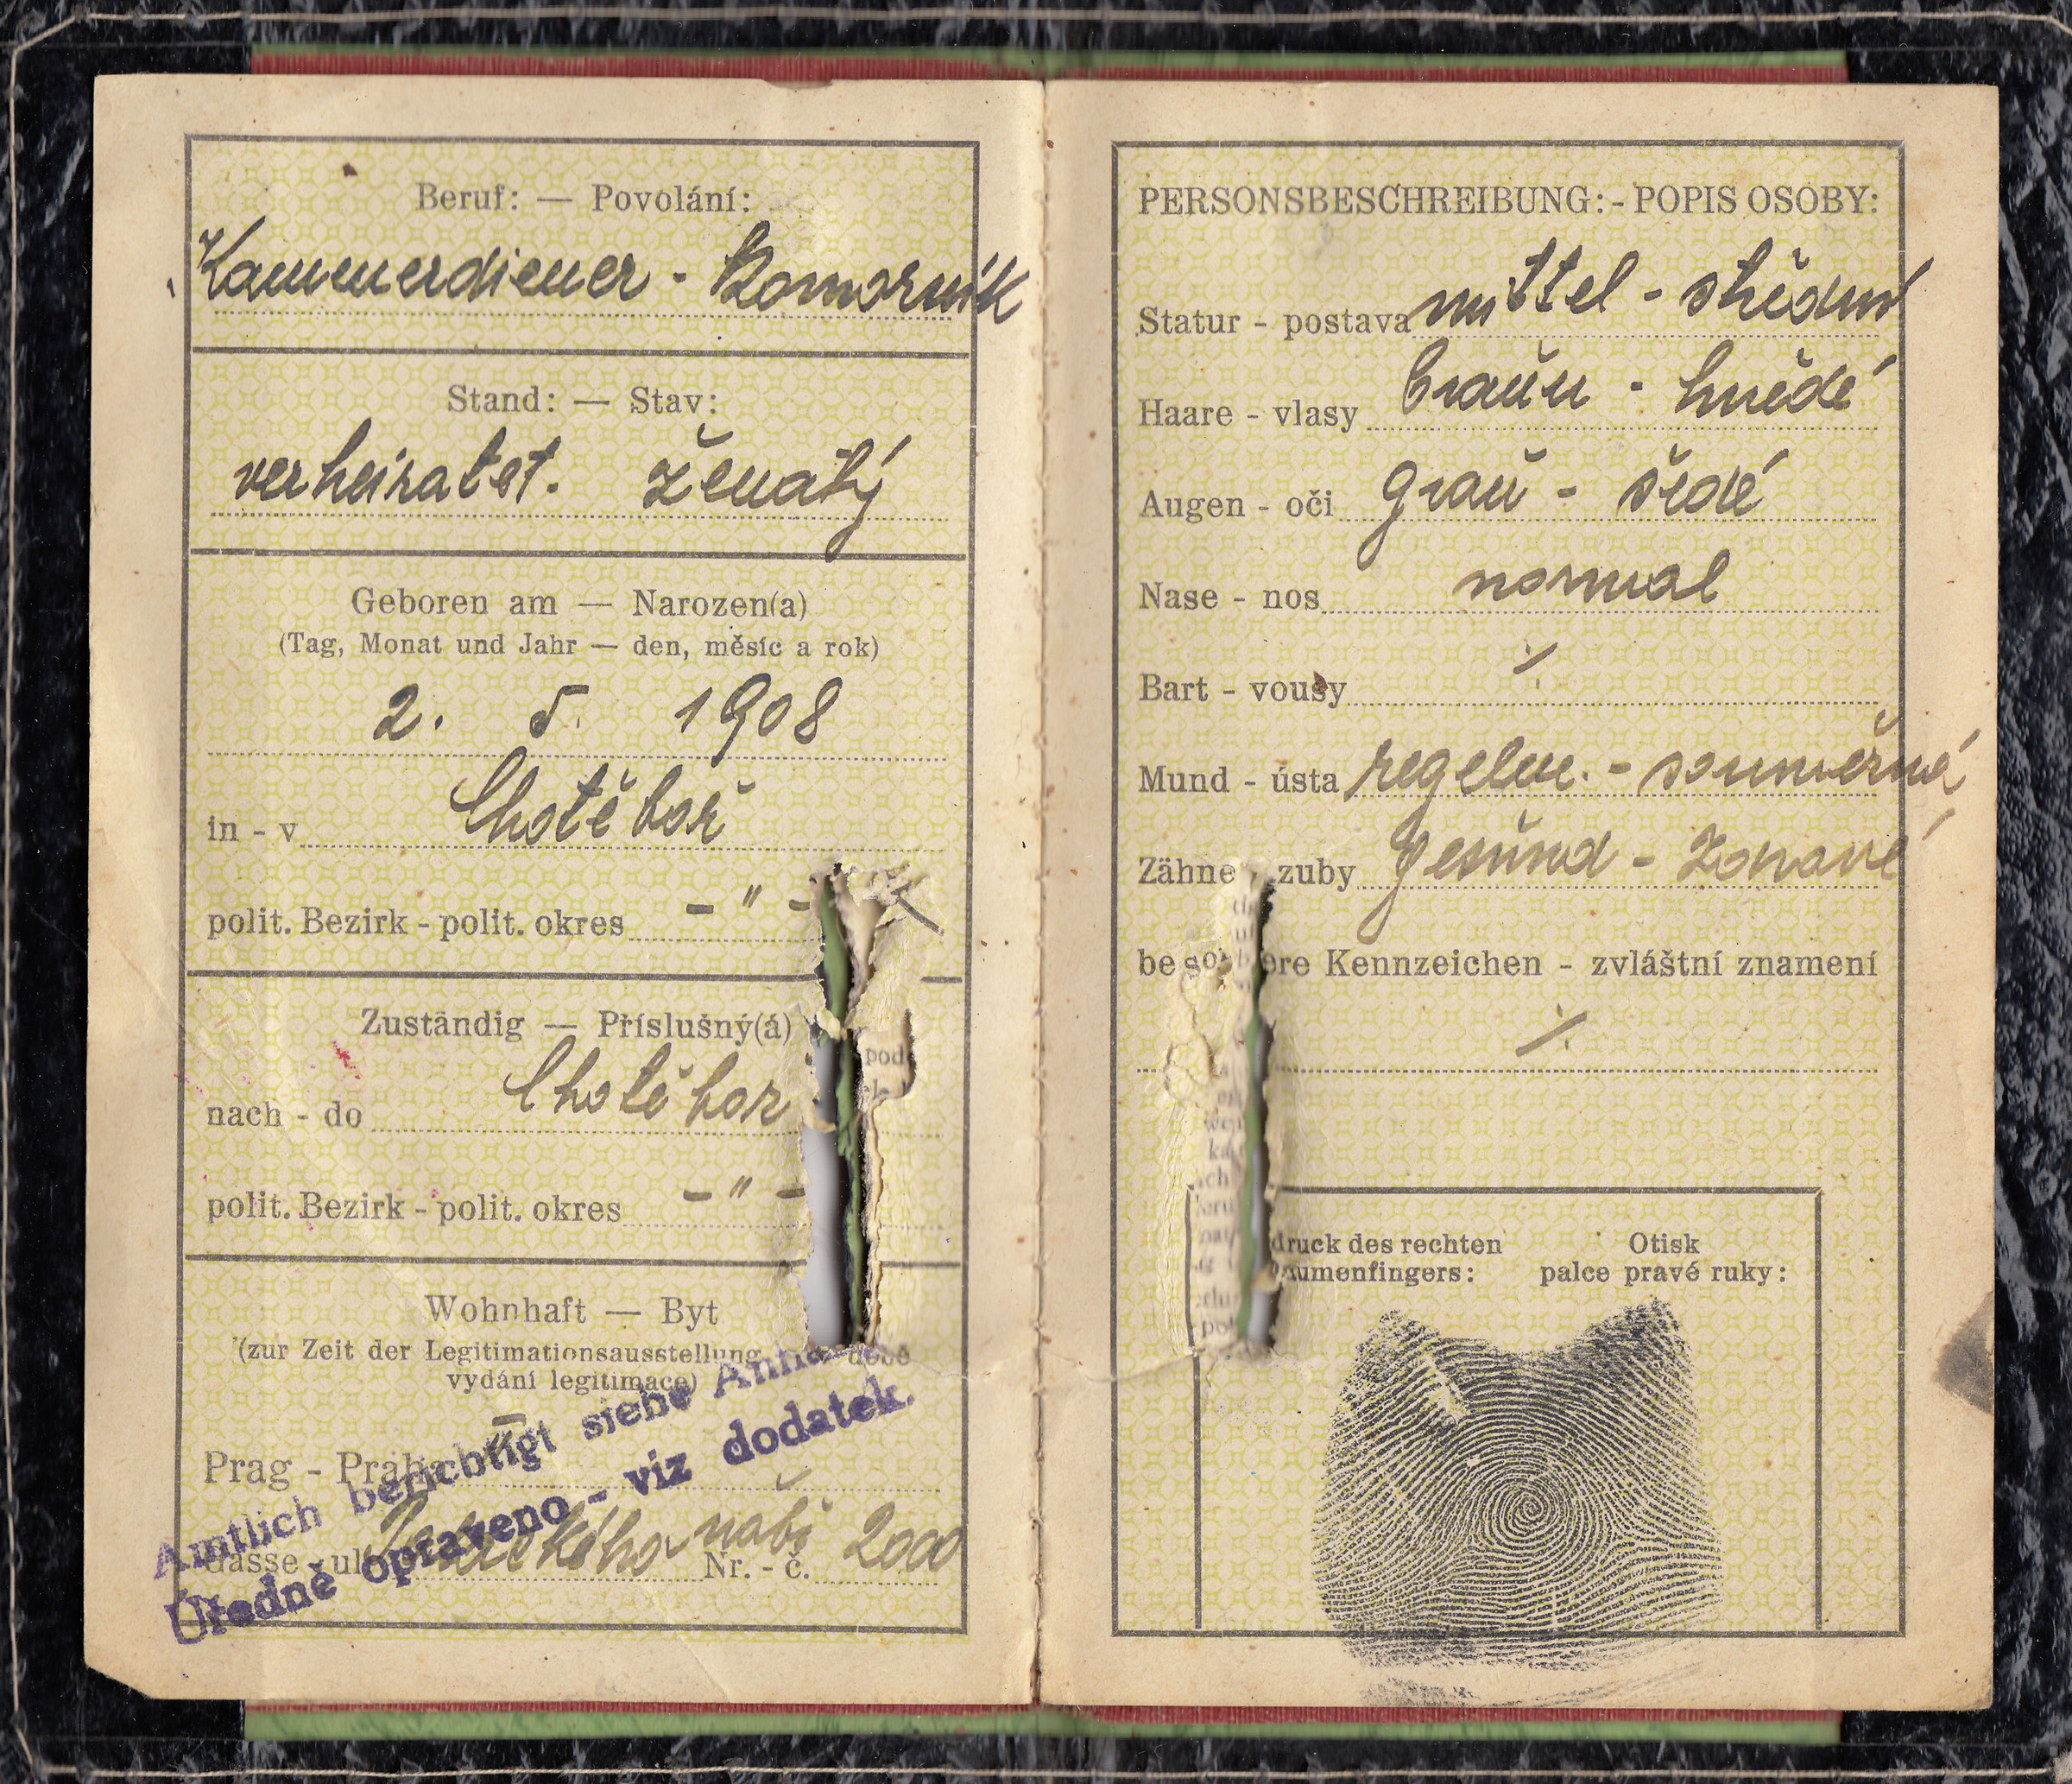 Beruf: — Povolání:
Kammerdiener - Komorník
Stand: — Stav:
verheiratet. ženatý
Geboren am — Narozen(a)
(Tag, Monat und Jahr — den, měsíc a rok)
2. 5. 1908
in - v Chotěboř
polit. Bezirk - polit. okres - " -
Zuständig — Příslušný(á)
nach - do Chotěboř
polit. Bezirk - polit. okres - " -
Wohnhaft — Byt
(zur Zeit der Legitimationsausstellung době
vydání legitimace)
Prag - Praha
Gasse ul nábř Nr. - č. 2000
Amtlich berichtigt siehe
Úředně opraveno - viz dodatek.
PERSONSBESCHREIBUNG: - POPIS OSOBY:
Statur - postava mittel - střední
Haare - vlasy braun - hnědé
Augen - oči grau - šedé
Nase - nos normal
Bart - vousy ⁒
Mund - ústa regelm. - souměrná
Zähne zuby gesund - zdravé
Kennzeichen - zvláštní znamení
⁒
druck des rechten Otisk
aumenfingers: palce pravé ruky: